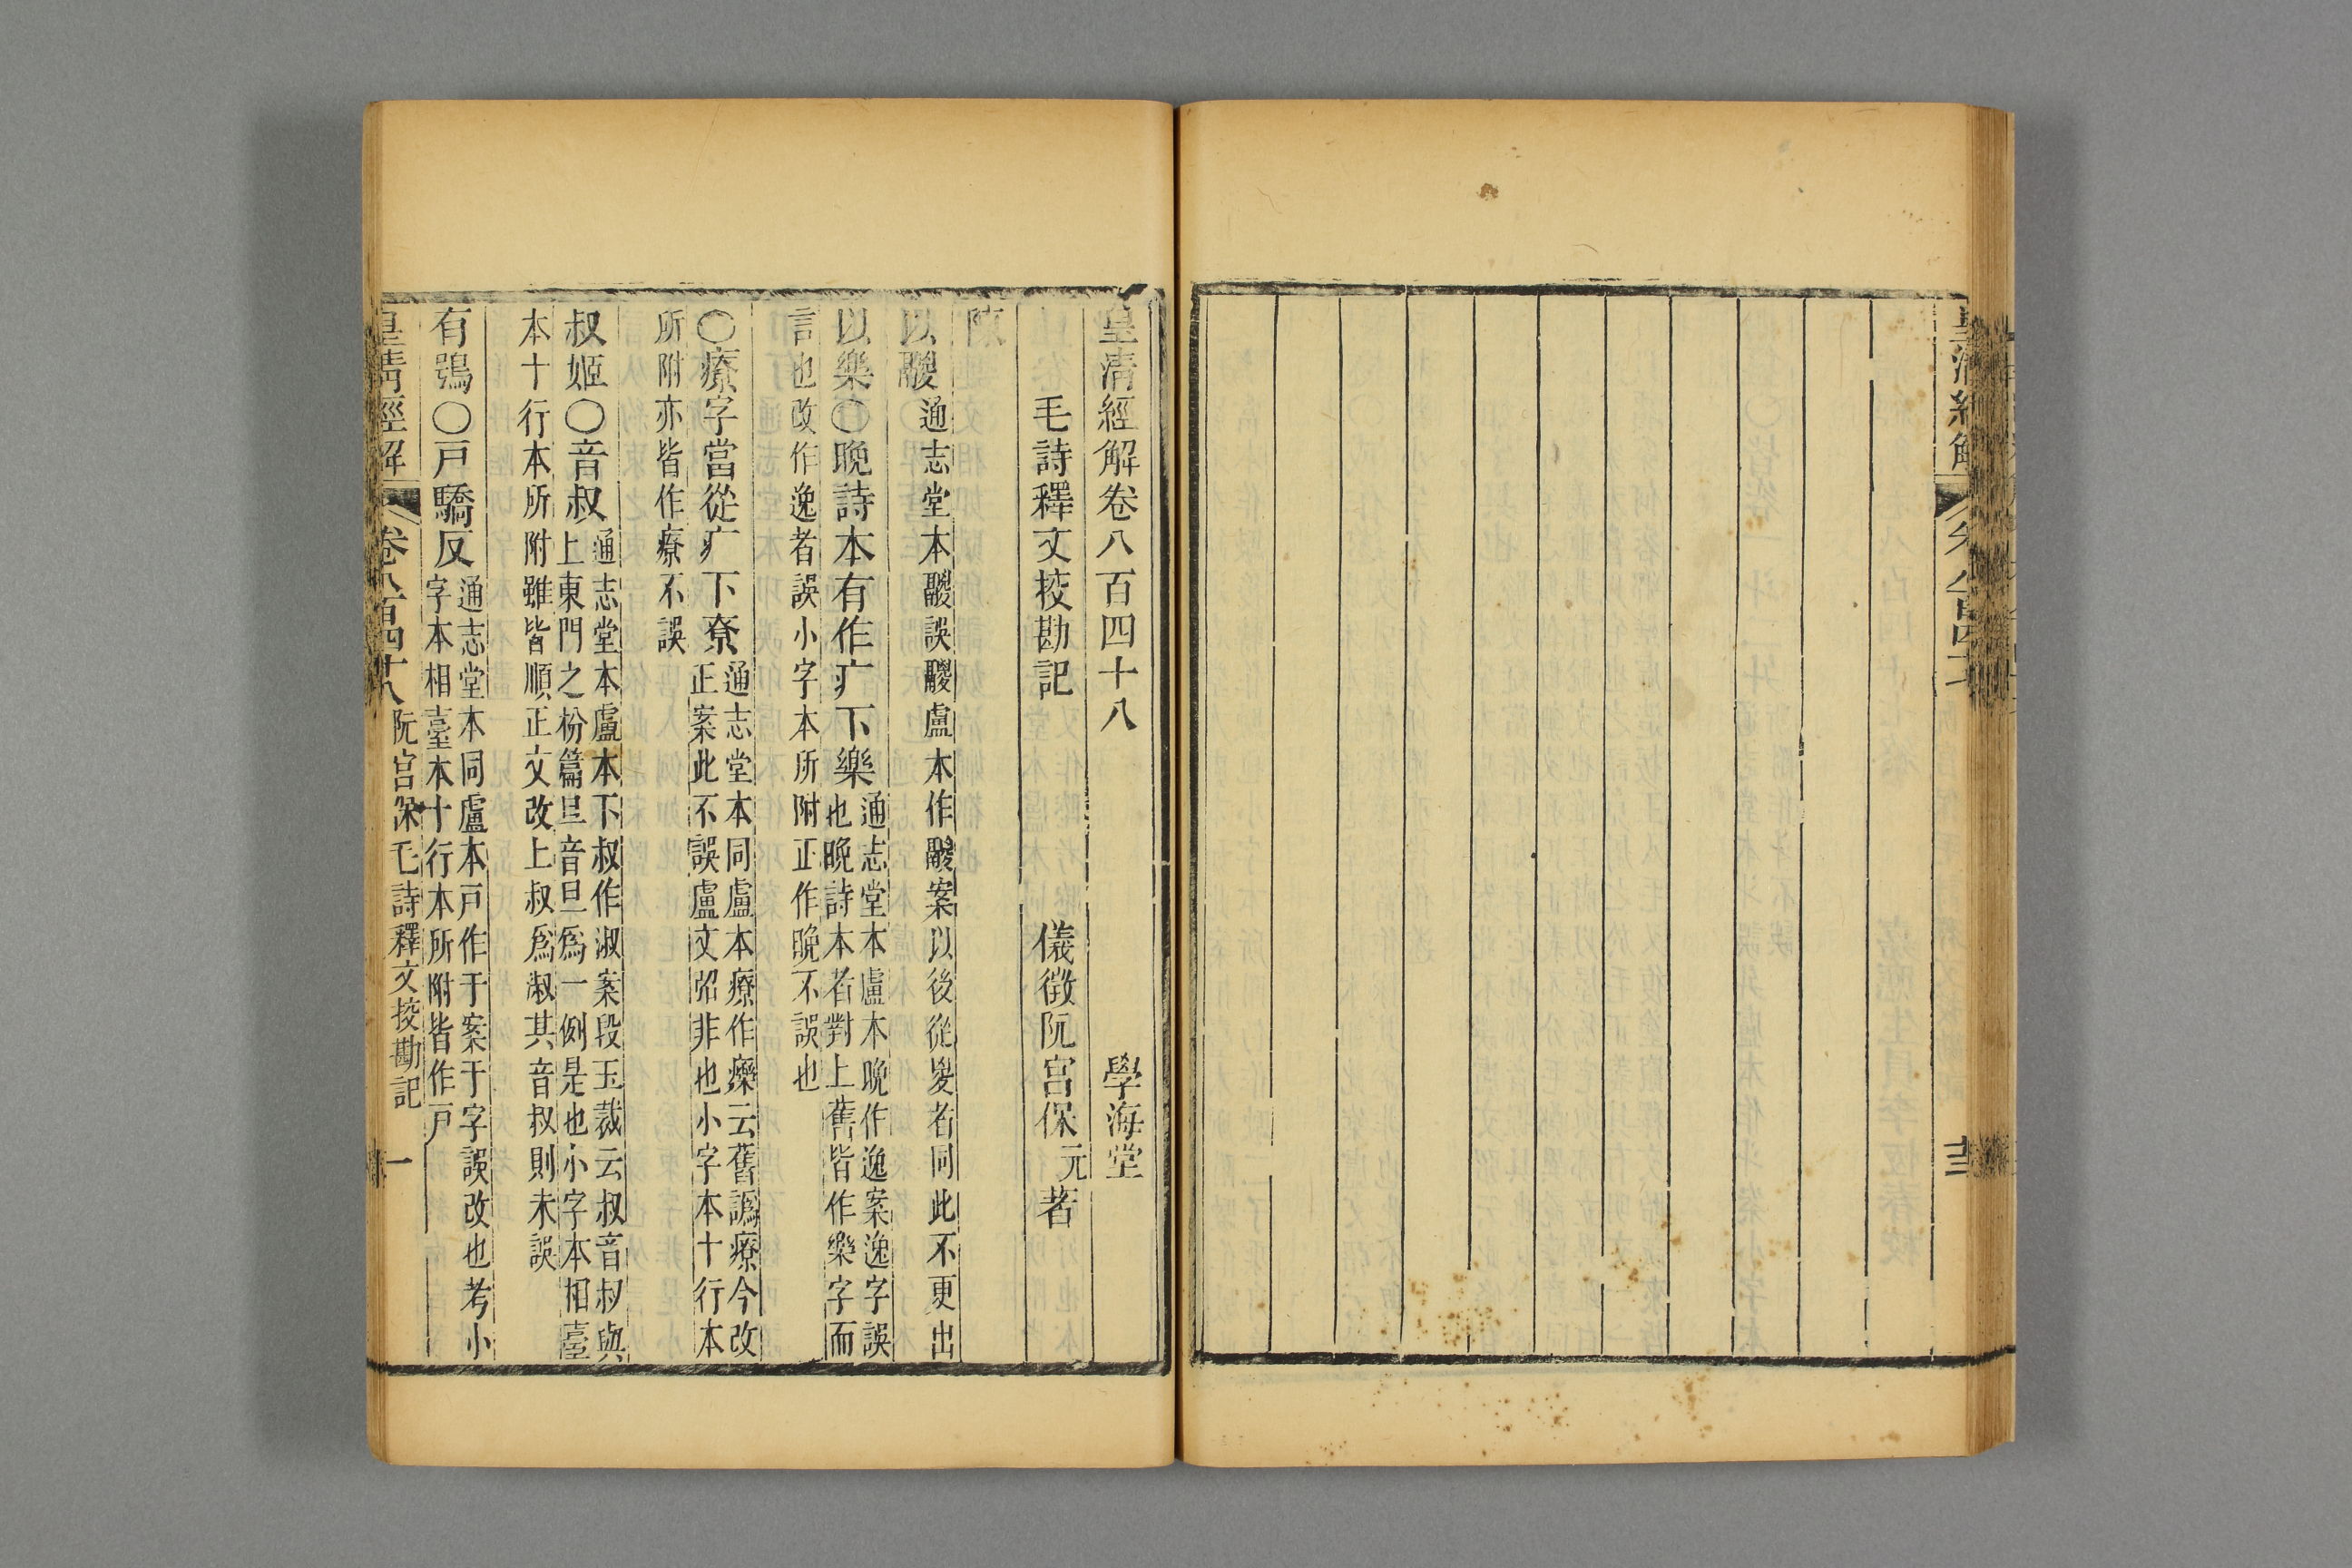 皇清經解
皇清經解卷八百四十八
學海堂
毛詩釋文挍勘記
儀徵阮宮保元著
陳
以鬷通志堂本鬷誤鬷盧本作鬷案以後從㚇者同此不更出
以樂〇晚詩本有作疒下樂通志堂本盧本晚作逸案逸字誤
也晚詩本者對上舊皆作樂字而
言也改作逸者誤小字本所附正作晚不誤也
〇療字當從疒下尞通志堂本同盧本療作𤻲云舊譌療今改
正案此不誤盧文弨非也小字本十行本
所附亦皆作療不誤
叔姬〇音叔通志堂本盧本下叔作淑案段玉裁云叔音叔與
上東門之枌篇旦音旦爲一例是也小字本相臺
本十行本所附雖皆順正文改上叔爲淑其音叔則未誤
有鴞〇戸驕反通志堂本同盧本戸作于案于字誤改也考小
字本相臺本十行本所附皆作戸
皇清經解
卷八百四十八
阮宮保毛詩釋文挍勘記
一